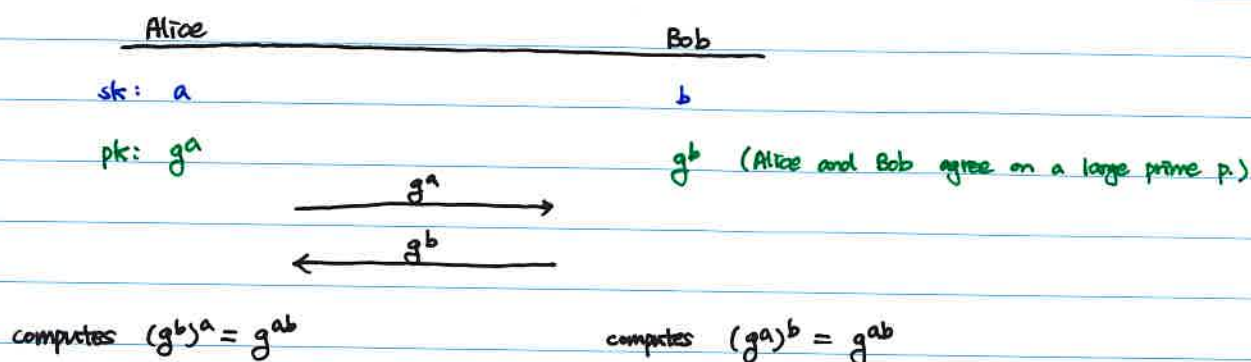 Alice Bob
sk: a b
pk: g^a g^b (Alice and Bob agree on a large prime p.)
g^a
g^b
computes (g^b)^a = g^ab computes (g^a)^b = g^ab